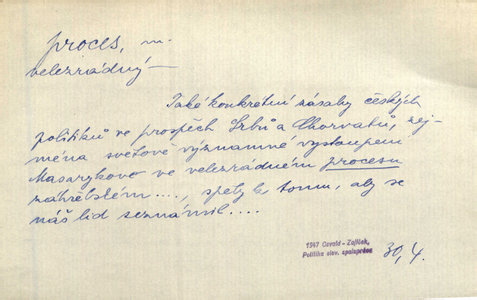 proces, m.
velezrádný —
Také konkrétní zásahy českých
politiků ve prospěch Srbů a Chorvatů, zej-
ména světově významné vystoupení
Masarykovo ve velezrádném procesu
záhřebském...., spěly k tomu, aby se
náš lid seznámil....
1947 Osvald - Zajíček,
Politika slov. spolupráce
30, 4.